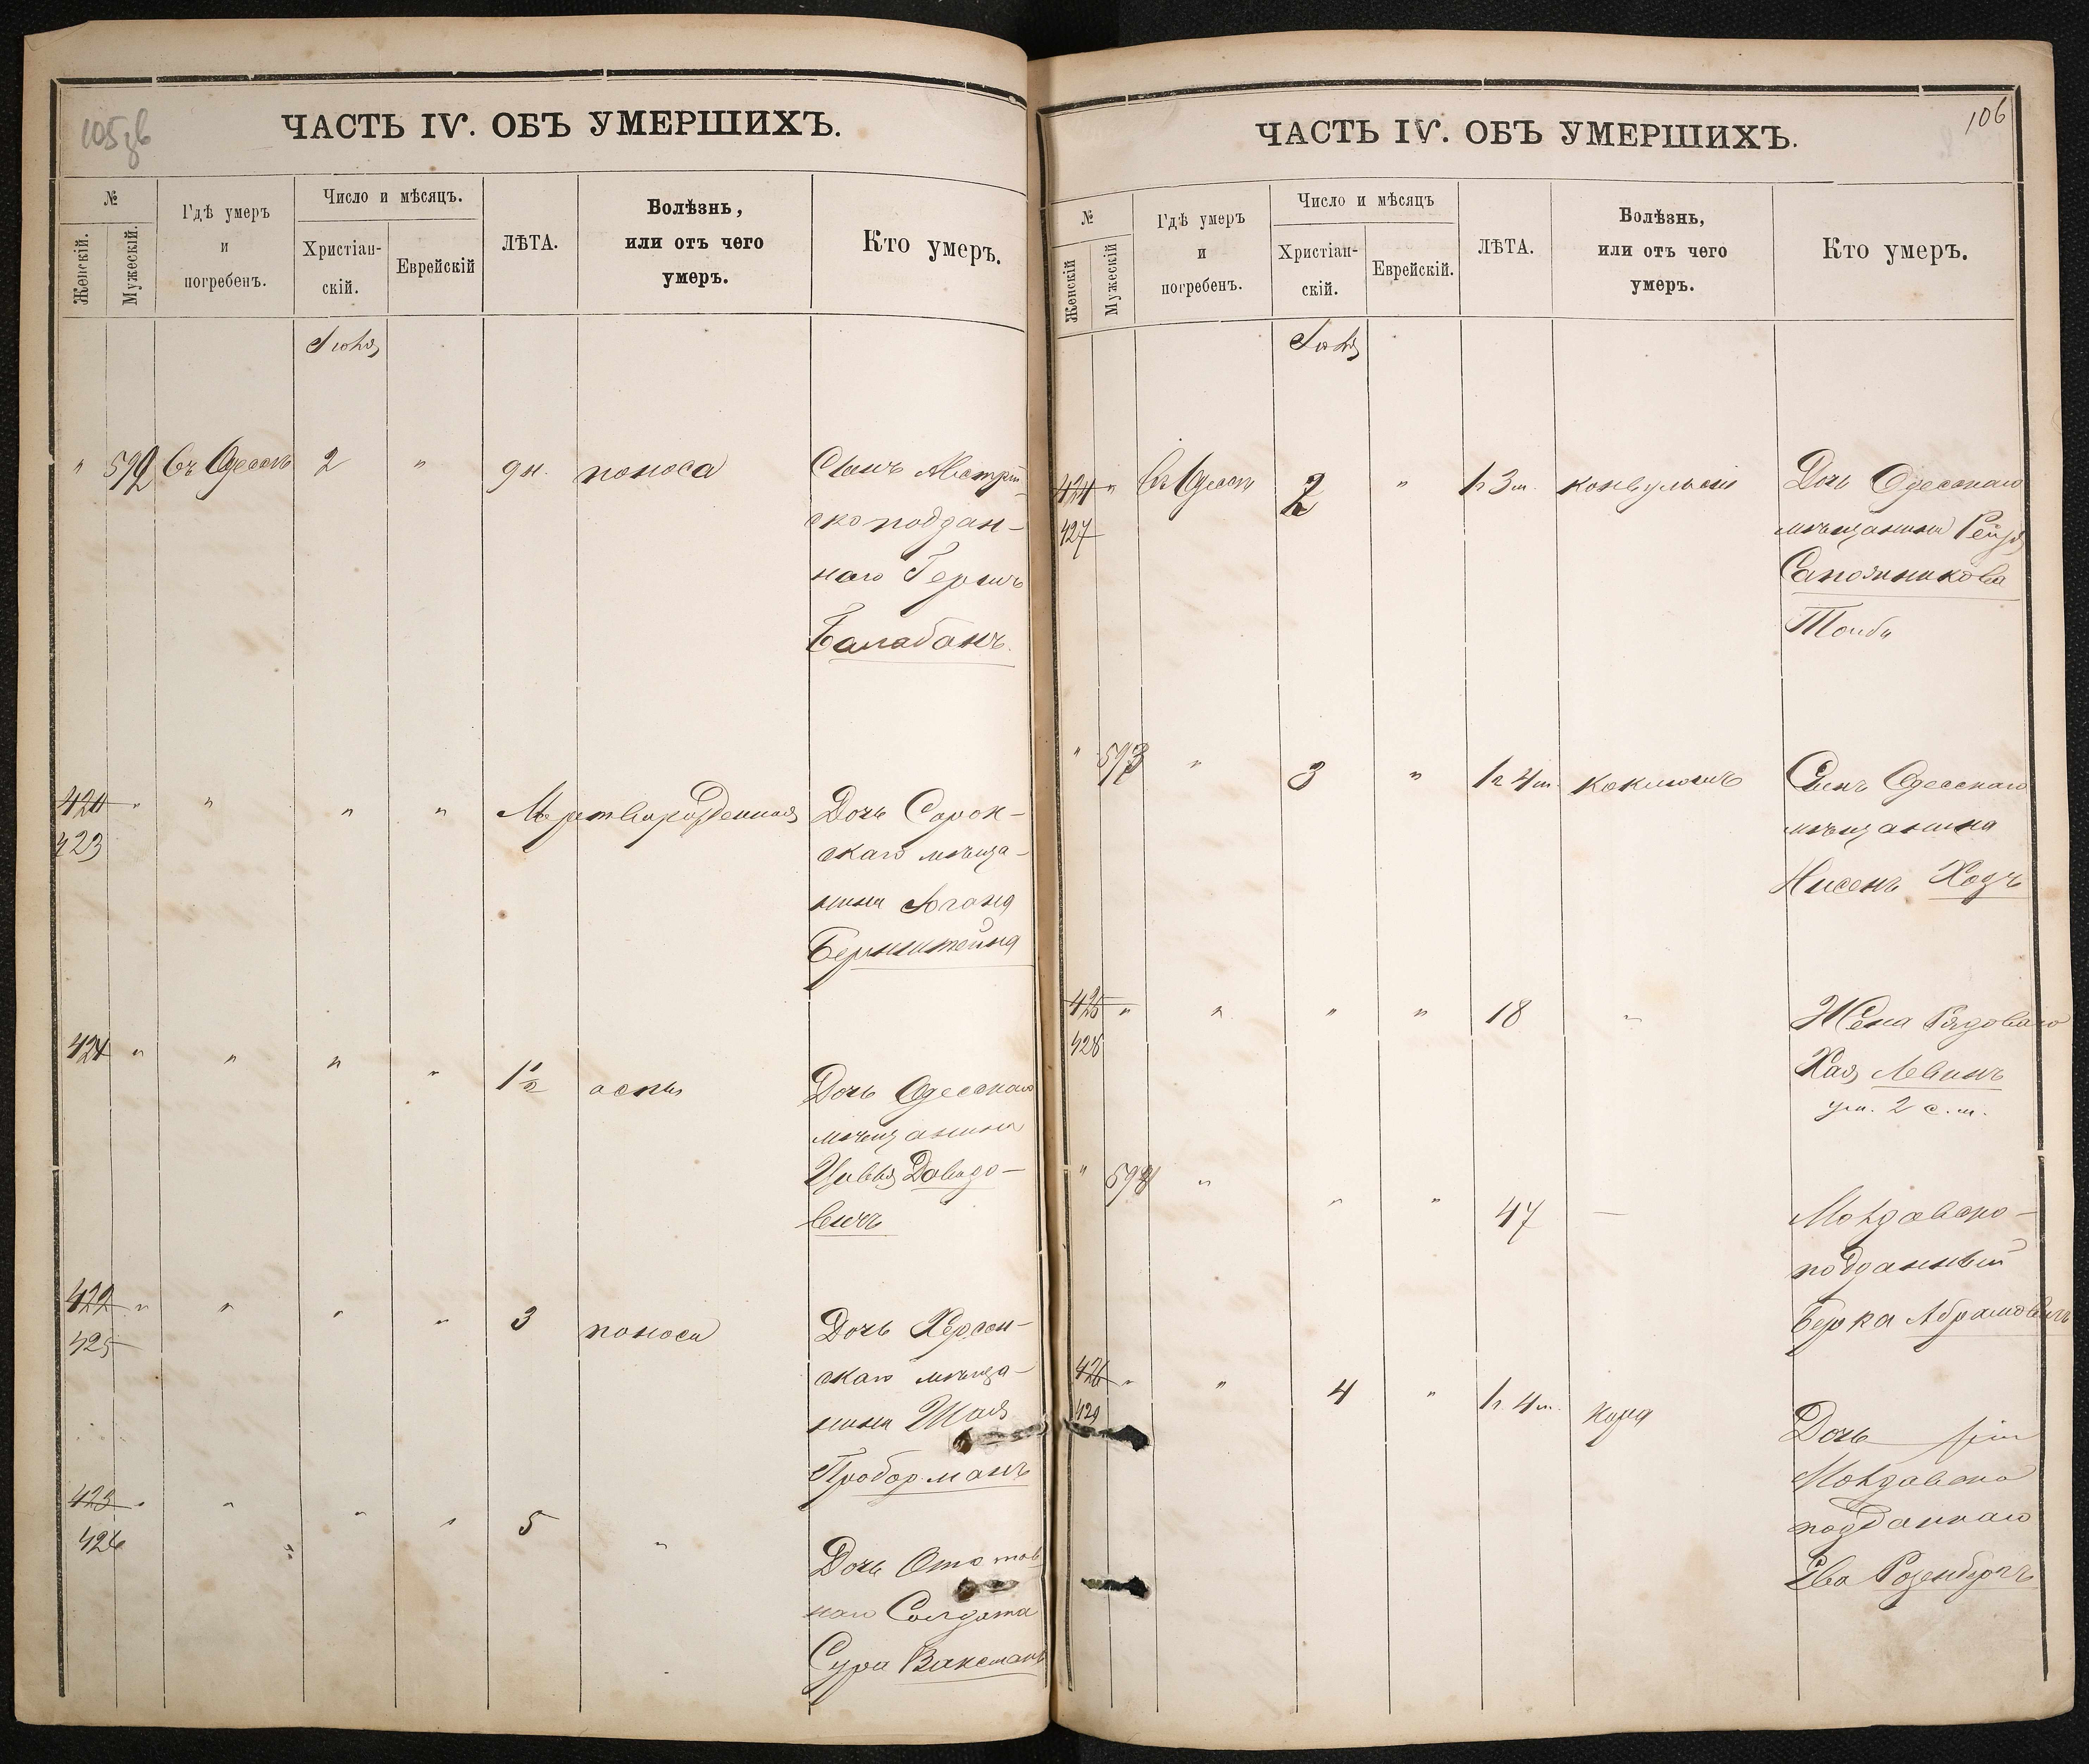 105 зв
ЧАСТЬ IV. ОБЪ УМЕРШИХЪ.
№
Женскій.
Мужескій.
Гдѣ умеръ
и
погребенъ.
Число и мѣсяцъ.
Христіан-
скій.
Еврейскій
ЛѢТА.
Болѣзнь,
или отъ чего
умеръ.
Кто умеръ.
Іюля
" 592 въ Одессѣ 2 " дн. поноса Сынъ Австрій-
скоподдан-
наго Гершъ
Балабанъ.
420 " " " " Мертворожденная Дочь Сорок-
423 скаго мѣща-
нина
Бернштейна
421 " " " " 1½ оспы Дочь Одесскаго
мѣщанина
Цивья Давидо-
вичъ
422 " " " " 3 поноса Дочь Херсон-
425 скаго мѣща-
нина Шая
Проборманъ
423 " " " " 5 " Дочь
426 наго Солдата
Сура Ваксманъ
106
ЧАСТЬ IV. ОБЪ УМЕРШИХЪ.
№
Женскій
Мужескій
Гдѣ умеръ
и
погребенъ.
Число и мѣсяцъ
Христіан-
скій.
Еврейскій.
ЛѢТА.
Болѣзнь,
или отъ чего
умеръ.
Кто умеръ.
Іюля
424 " въ Одессѣ 2 " 1 г 3 м. конвульсіи Дочь Одесскаго
427 мѣщанина Рейзя
Сапожникова
" 593 " 3 " 1 г 4 м. коклюшъ Сынъ Одесскаго
мѣщанина
Нисенъ Ходъ
425 " " " " 18 " Жена Рядоваго
428 Хая Левинъ
ум. 2 с. м.
" 594 " " " 47 — Молдавско-
подданный
Берка Абрамовичъ
426 " " 4 " 1 г 4 м. кора Дочь
429 Молдавско
подданнаго
Ева Розенбергъ